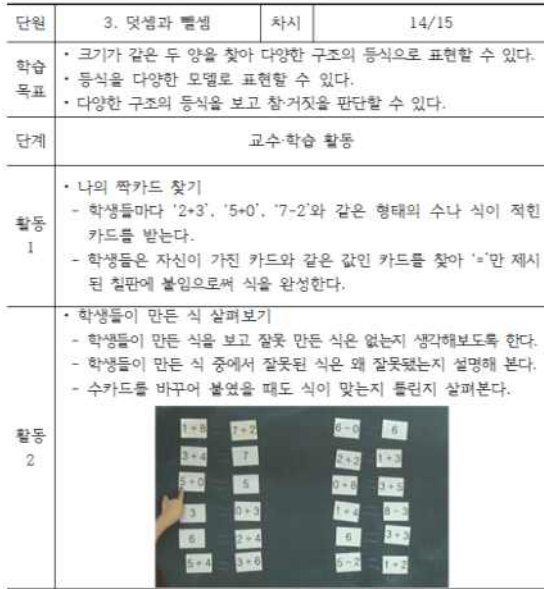 단원 3. 덧셈과 뺄셈 차시 14/15
학습 목표
• 크기가 같은 두 양을 찾아 다양한 구조의 등식으로 표현할 수 있다.
• 등식을 다양한 모델로 표현할 수 있다.
• 다양한 구조의 등식을 보고 참·거짓을 판단할 수 있다.
단계 교수·학습 활동
활동 1
• 나의 짝카드 찾기
- 학생들마다 '2+3', '5+0', '7-2'와 같은 형태의 수나 식이 적힌
카드를 받는다.
- 학생들은 자신이 가진 카드와 같은 값인 카드를 찾아 '='만 제시
된 칠판에 붙임으로써 식을 완성한다.
활동 2
• 학생들이 만든 식 살펴보기
- 학생들이 만든 식을 보고 잘못 만든 식은 없는지 생각해보도록 한다.
- 학생들이 만든 식 중에서 잘못된 식은 왜 잘못됐는지 설명해 본다.
- 수카드를 바꾸어 붙였을 때도 식이 맞는지 틀린지 살펴본다.
1+8 = 7+2 6-0 = 6
3+4 = 7 2+2 = 1+3
5+0 = 5 0+8 = 3+5
3 = 0+3 1+4 = 8-3
6 = 2+4 6 = 3+3
5+4 = 3+6 5-2 = 1+2